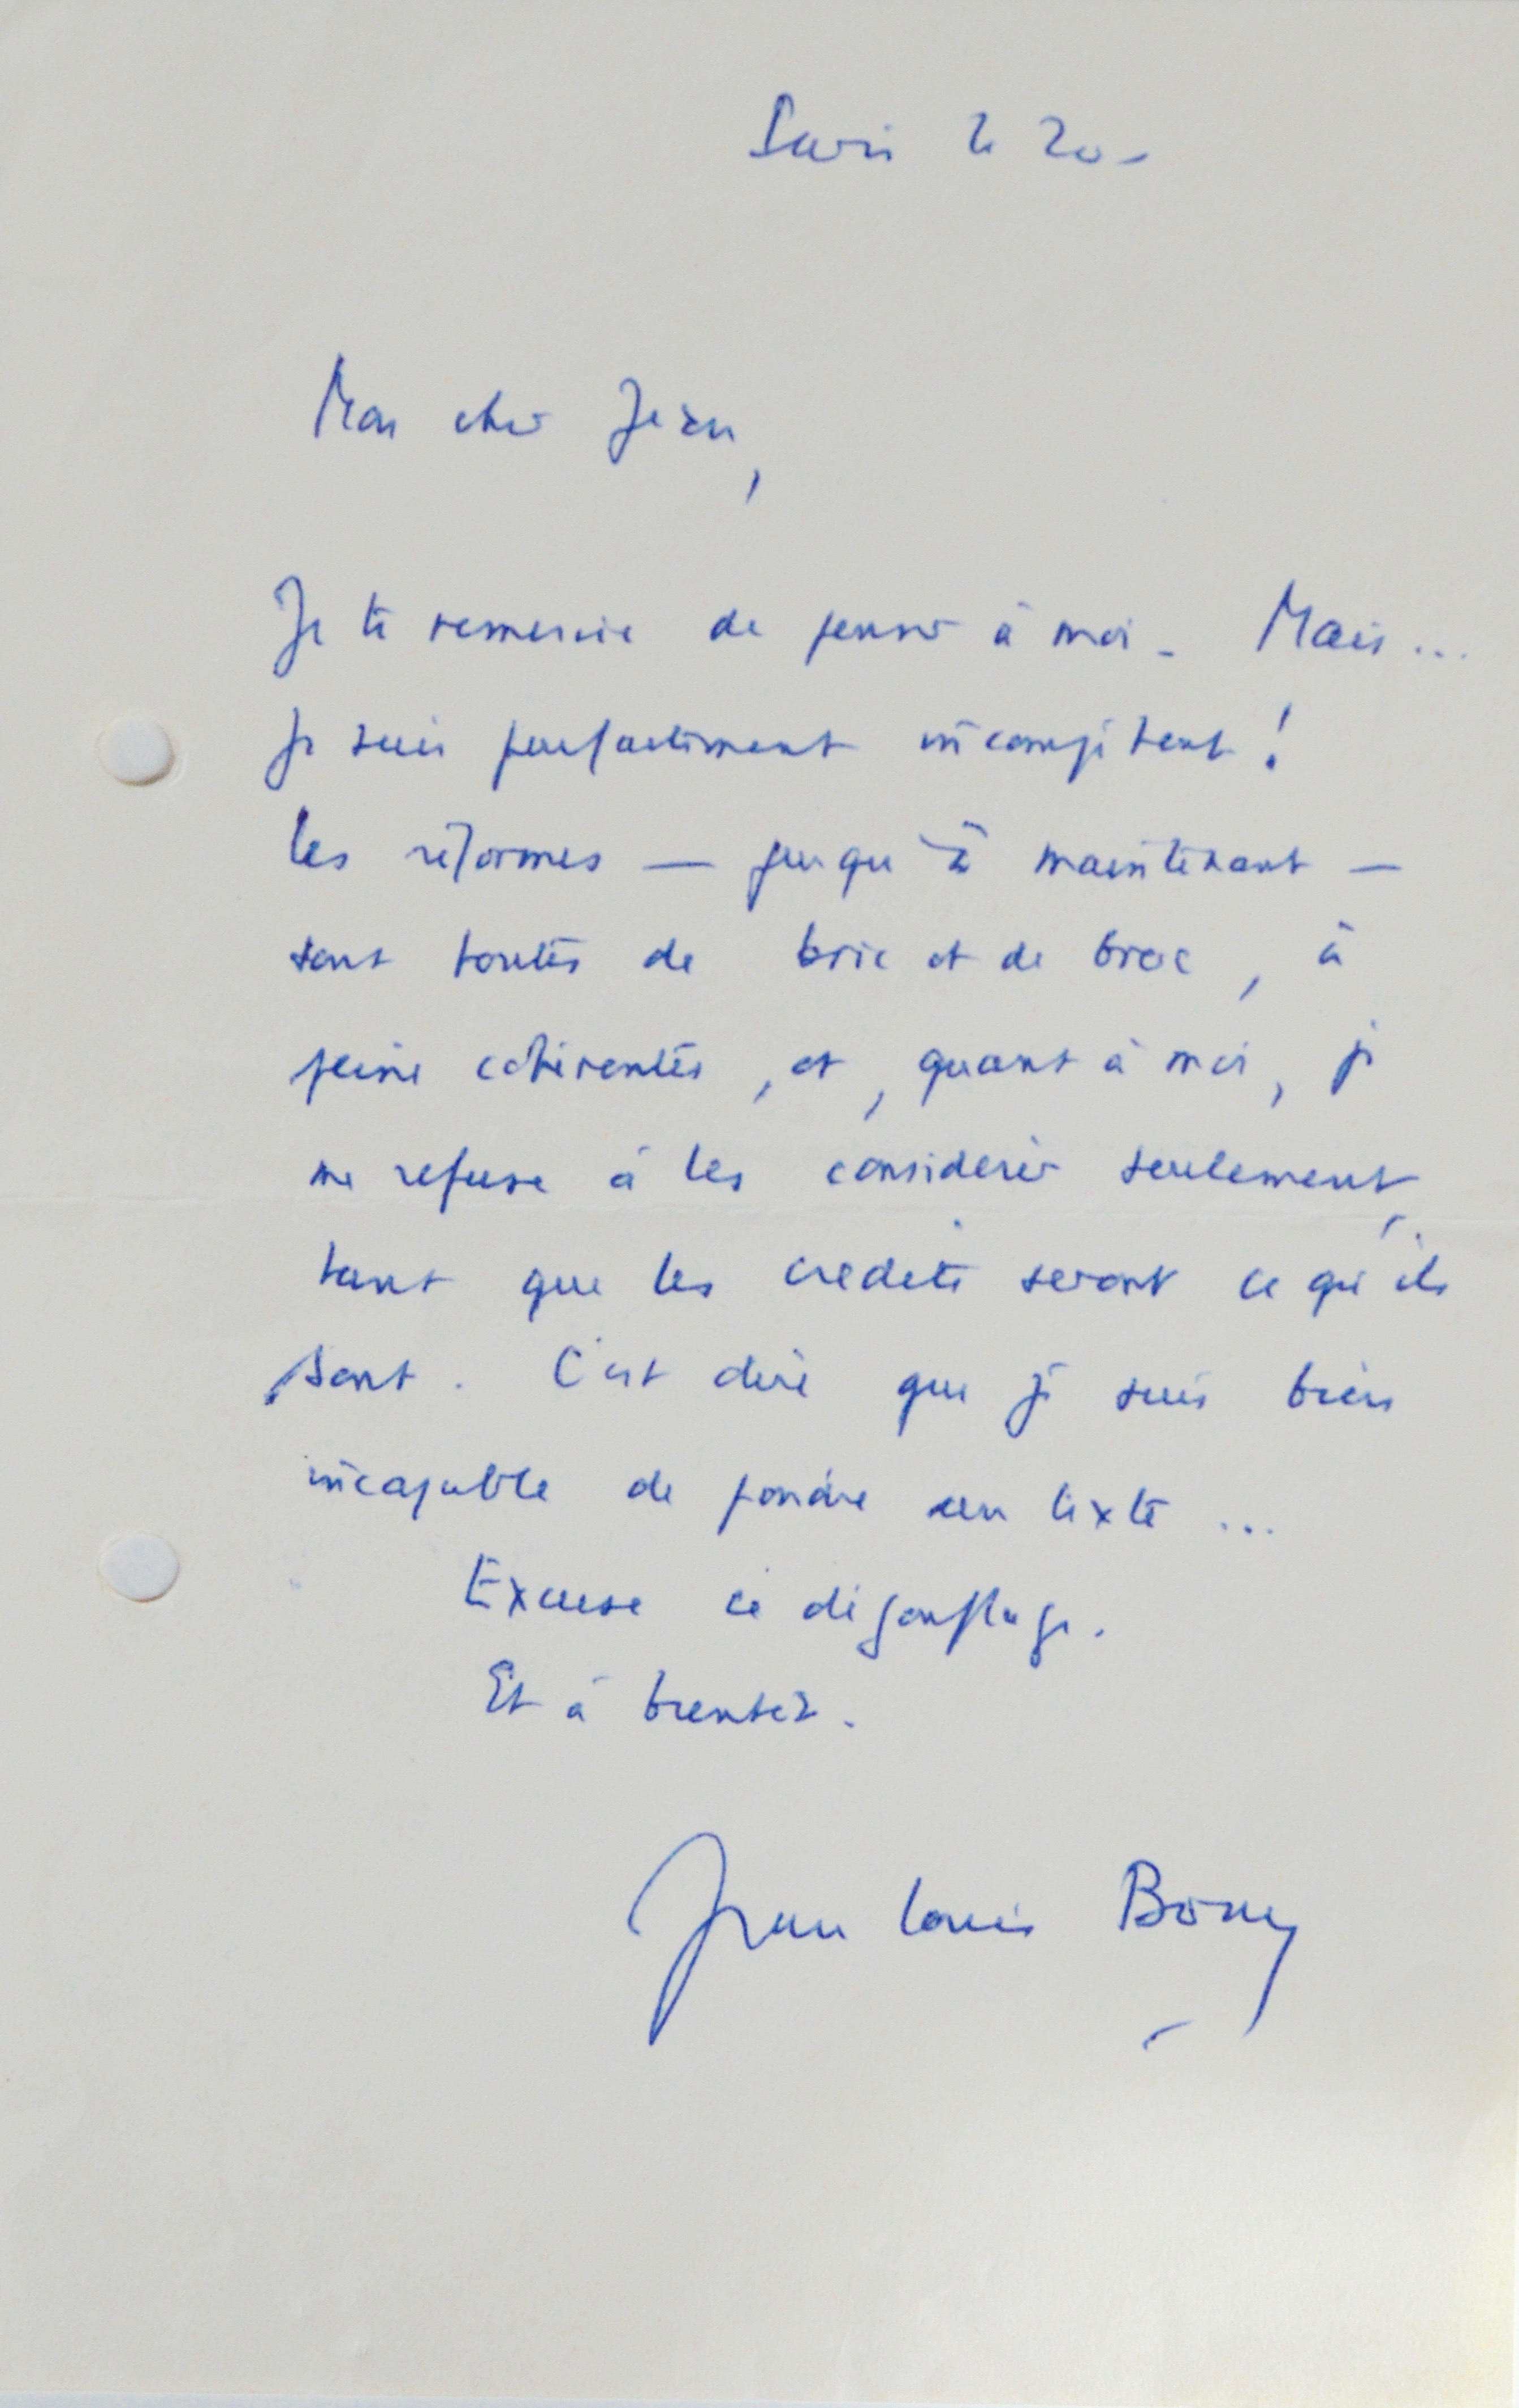 Paris le 20 -
Mon cher Jean,
Je te remercie de penser à moi - Mais ...
Je suis parfaitement incompétent !
Les réformes — jusqu'à maintenant —
sont toutes de bric et de broc, à
peine cohérentes, et, quant à moi, je
me refuse à les considérer seulement,
tant que les crédits seront ce qu'ils
sont. C'est dire que je suis bien
incapable de pondre un texte ...
Excuse ce dégonflage.
Et à bientôt.
Jean Louis Bory